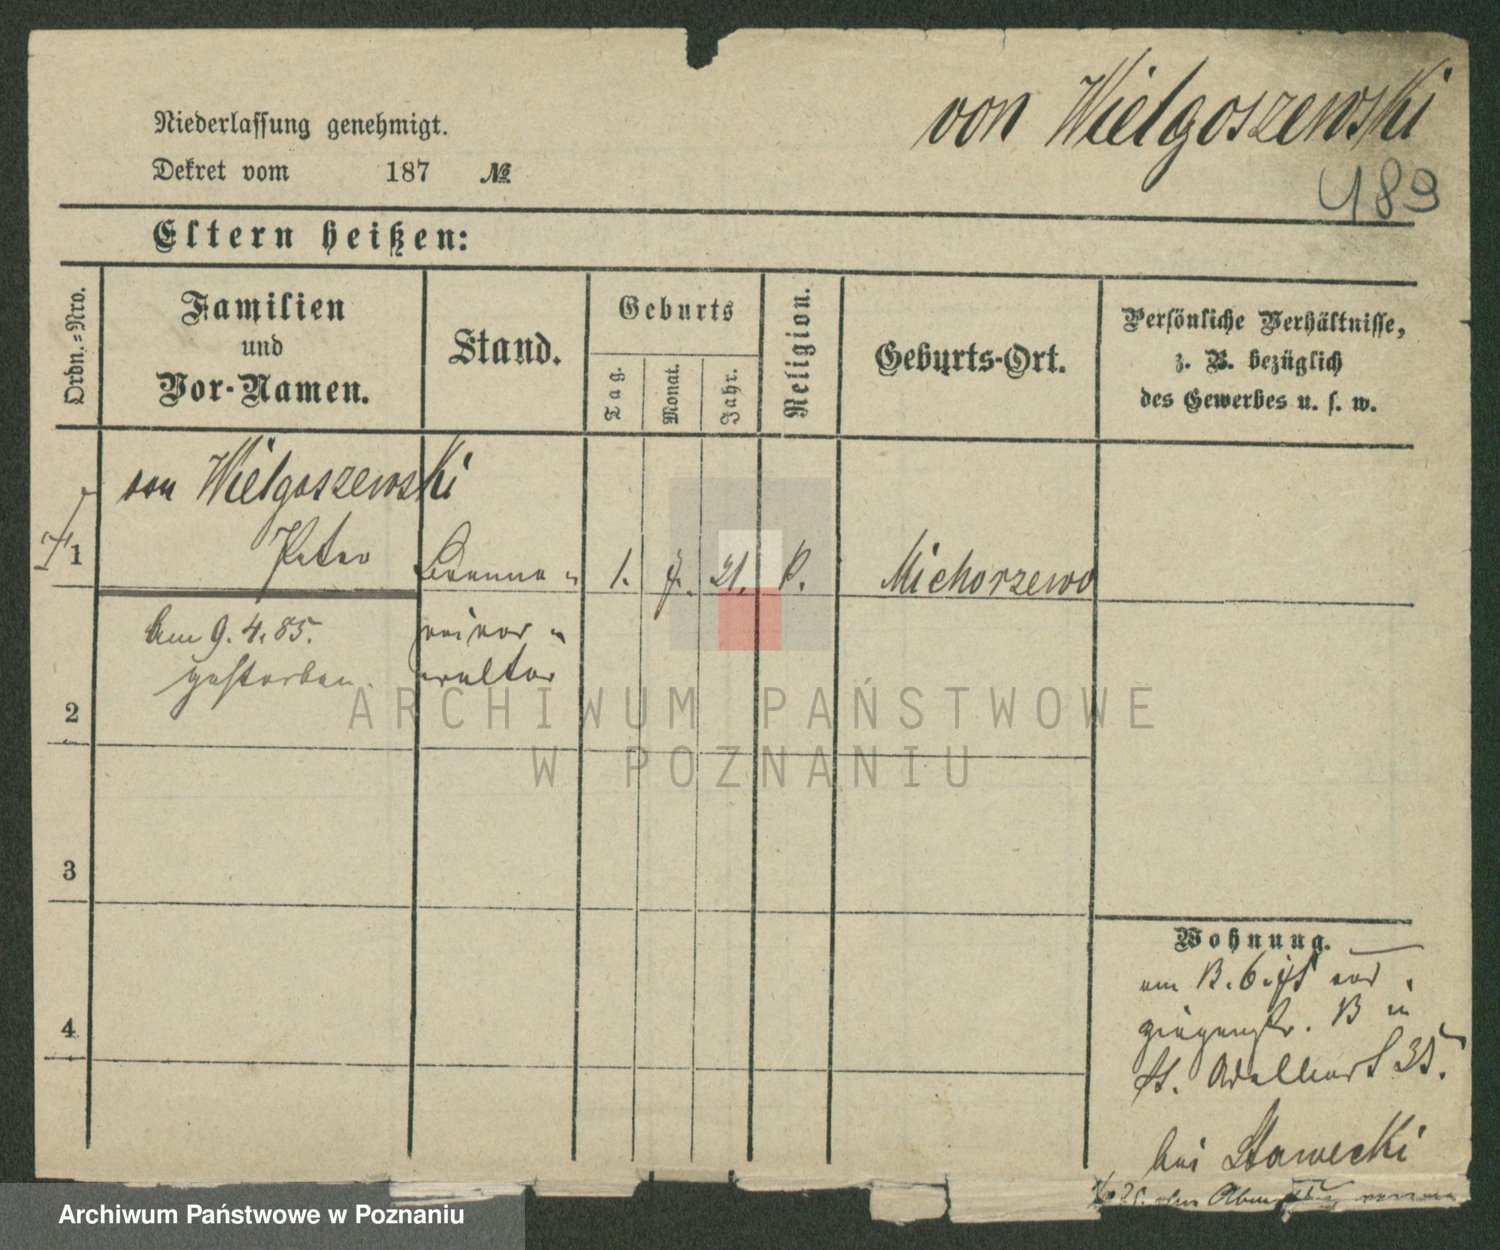 von Wielgoszewski
489
Niederlassung genehmigt.
Dekret vom 187 №
Eltern heißen:
Ordn.=Nro.
Familien
und
Vor-Namen.
Stand.
Geburts
Tag.
Monat.
Jahr.
Religion.
Geburts-Ort.
Persönliche Verhältnisse,
z. B. bezüglich
des Gewerbes u. s. w.
von Wielgoszewski
1 Peter 1. 7. 21. K. Michorzewo
Am 9. 4. 85.
gestorben.
walter
2
3
4
Wohnung.
am 13. 6. 75
13 in
St. Adalbert 35.
bei Stawecki
ARCHIWUM PAŃSTWOWE
W POZNANIU
Archiwum Państwowe w Poznaniu